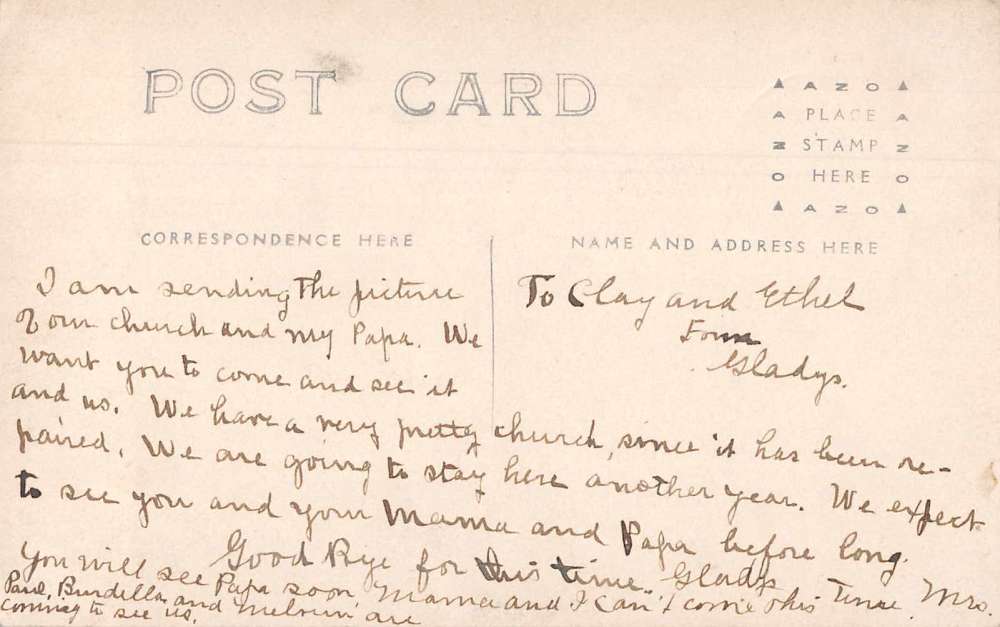 POST CARD
AZO
PLACE
STAMP
HERE
AZO
CORRESPONDENCE HERE
NAME AND ADDRESS HERE
To Clay and Ethel
From
Gladys.
I am sending the picture
of our church and my Papa. We
want you to come and see it
and us. We have a very pretty church, since it has been re-
paired. We are going to stay here another year. We expect
to see you and your Mama and Papa before long.
Good Bye for this time Gladys
You will see Papa soon Mama and I can't come this time. Mrs.
Paul, Burdella, and Melvin are
coming to see us.